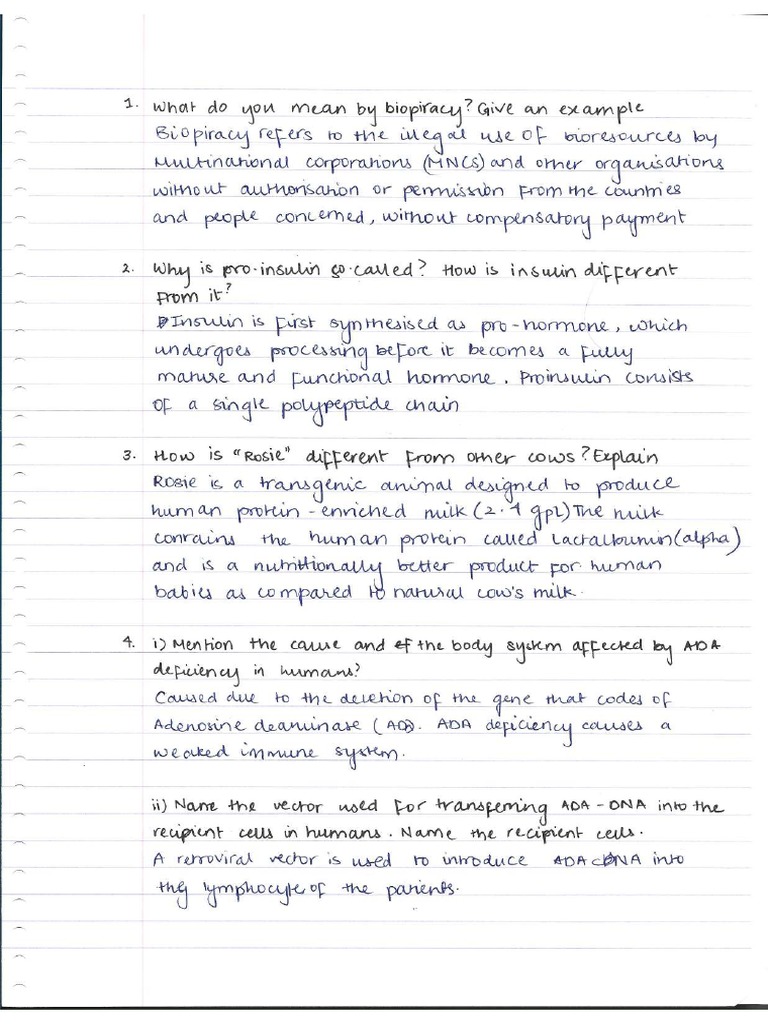 1. What do you mean by biopiracy? Give an example
Biopiracy refers to the illegal use of bioresources by
Multinational corporations (MNCs) and other organisations
without authorisation or permission from the countries
and people concerned, without compensatory payment
2. Why is pro-insulin so called? How is insulin different
from it?
Insulin is first synthesised as pro-hormone, which
undergoes processing before it becomes a fully
mature and functional hormone. Proinsulin consists
of a single polypeptide chain
3. How is "Rosie" different from other cows? Explain
Rosie is a transgenic animal designed to produce
human protein-enriched milk (2.4 gpl) The milk
contains the human protein called Lactalbumin (alpha)
and is a nutritionally better product for human
babies as compared to natural cow's milk.
4. i) Mention the cause and the body system affected by ADA
deficiency in humans?
Caused due to the deletion of the gene that codes of
Adenosine deaminase (ADA). ADA deficiency causes a
weaked immune system.
ii) Name the vector used for transferring ADA-DNA into the
recipient cells in humans. Name the recipient cells.
A retroviral vector is used to introduce ADA cDNA into
the lymphocyte of the patients.